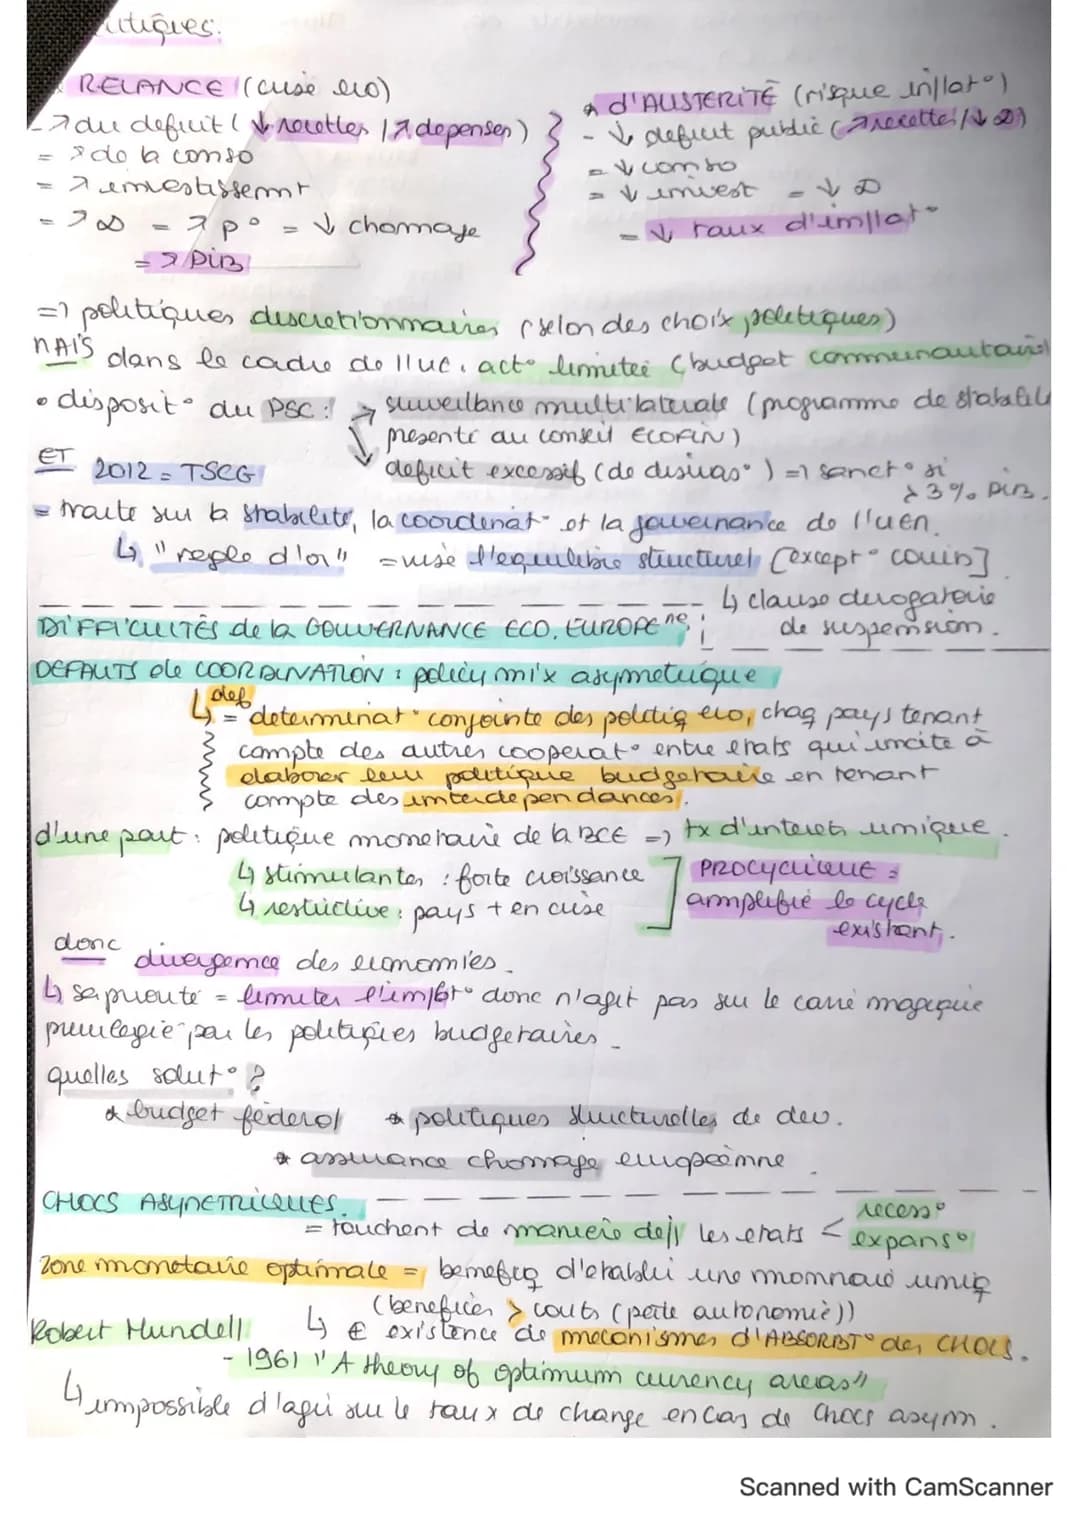 utiques.
RELANCE (crise eco)
- ↗ du deficit (↓ recettes / ↗ depenses)
= ↗ de la conso
= ↗ investissemnt
= ↗ D = ↗ p° = ↓ chomage
= ↗ PIB
* d'AUSTERITÉ (risque inflat°)
- ↓ deficit public (↗ recettes / ↓ D)
= ↓ conso
= ↓ invest = ↓ D
= ↓ taux d'inflat°
=> politiques discretionnaires (selon des choix politiques)
MAIS dans le cadre de l'UE, act° limitee (budget communautaire
• disposit° du PSC : ↗ surveillance multilaterale (programme de stabilite
presenté au conseil ECOFIN)
↘ deficit excessif (de disuas°) => sanct° si
> 3% PIB.
ET 2012 = TSCG
= traite sur la stabilité, la coordinat° et la gouvernance de l'UEM.
↳ "regle d'or" = vise l'equilibre structurel [except° covid]
↳ clause derogatoire
de suspension.
DIFFICULTÉS de la GOUVERNANCE ECO. EUROPEne :
DEFAUTS de COORDINATION : policy mix asymetrique
↳ def = determinat° conjointe des politiq eco, chaq pays tenant
compte des autres cooperat° entre etats qui incite à
elaborer leur politique budgetaire en tenant
compte des interdependances.
d'une part : politique monetaire de la BCE => tx d'interets unique.
↳ stimulantes : forte croissance
↳ restrictive : pays + en crise
PROCYCLIQUE =
amplifie le cycle
existant.
donc divergence des economies.
↳ sa priorité = limiter l'inflat° donc n'agit pas sur le carré magique
privilegie par les politiques budgetaires.
quelles solut° ?
* budget federal * politiques structurelles de dev.
* assurance chomage europeenne
CHOCS ASYMETRIQUES.
= touchent de maniere de// les etats < recess°
expans°
Zone monetaire optimale = benefiq d'etablir une monnaie uniq
(benefices > couts (perte autonomie))
Robert Mundell ↳ € existence de mecanismes d'ABSORBT° des CHOCS.
- 1961 "A theory of optimum currency areas"
↳ impossible d'agir sur le taux de change en cas de chocs asym.
Scanned with CamScanner